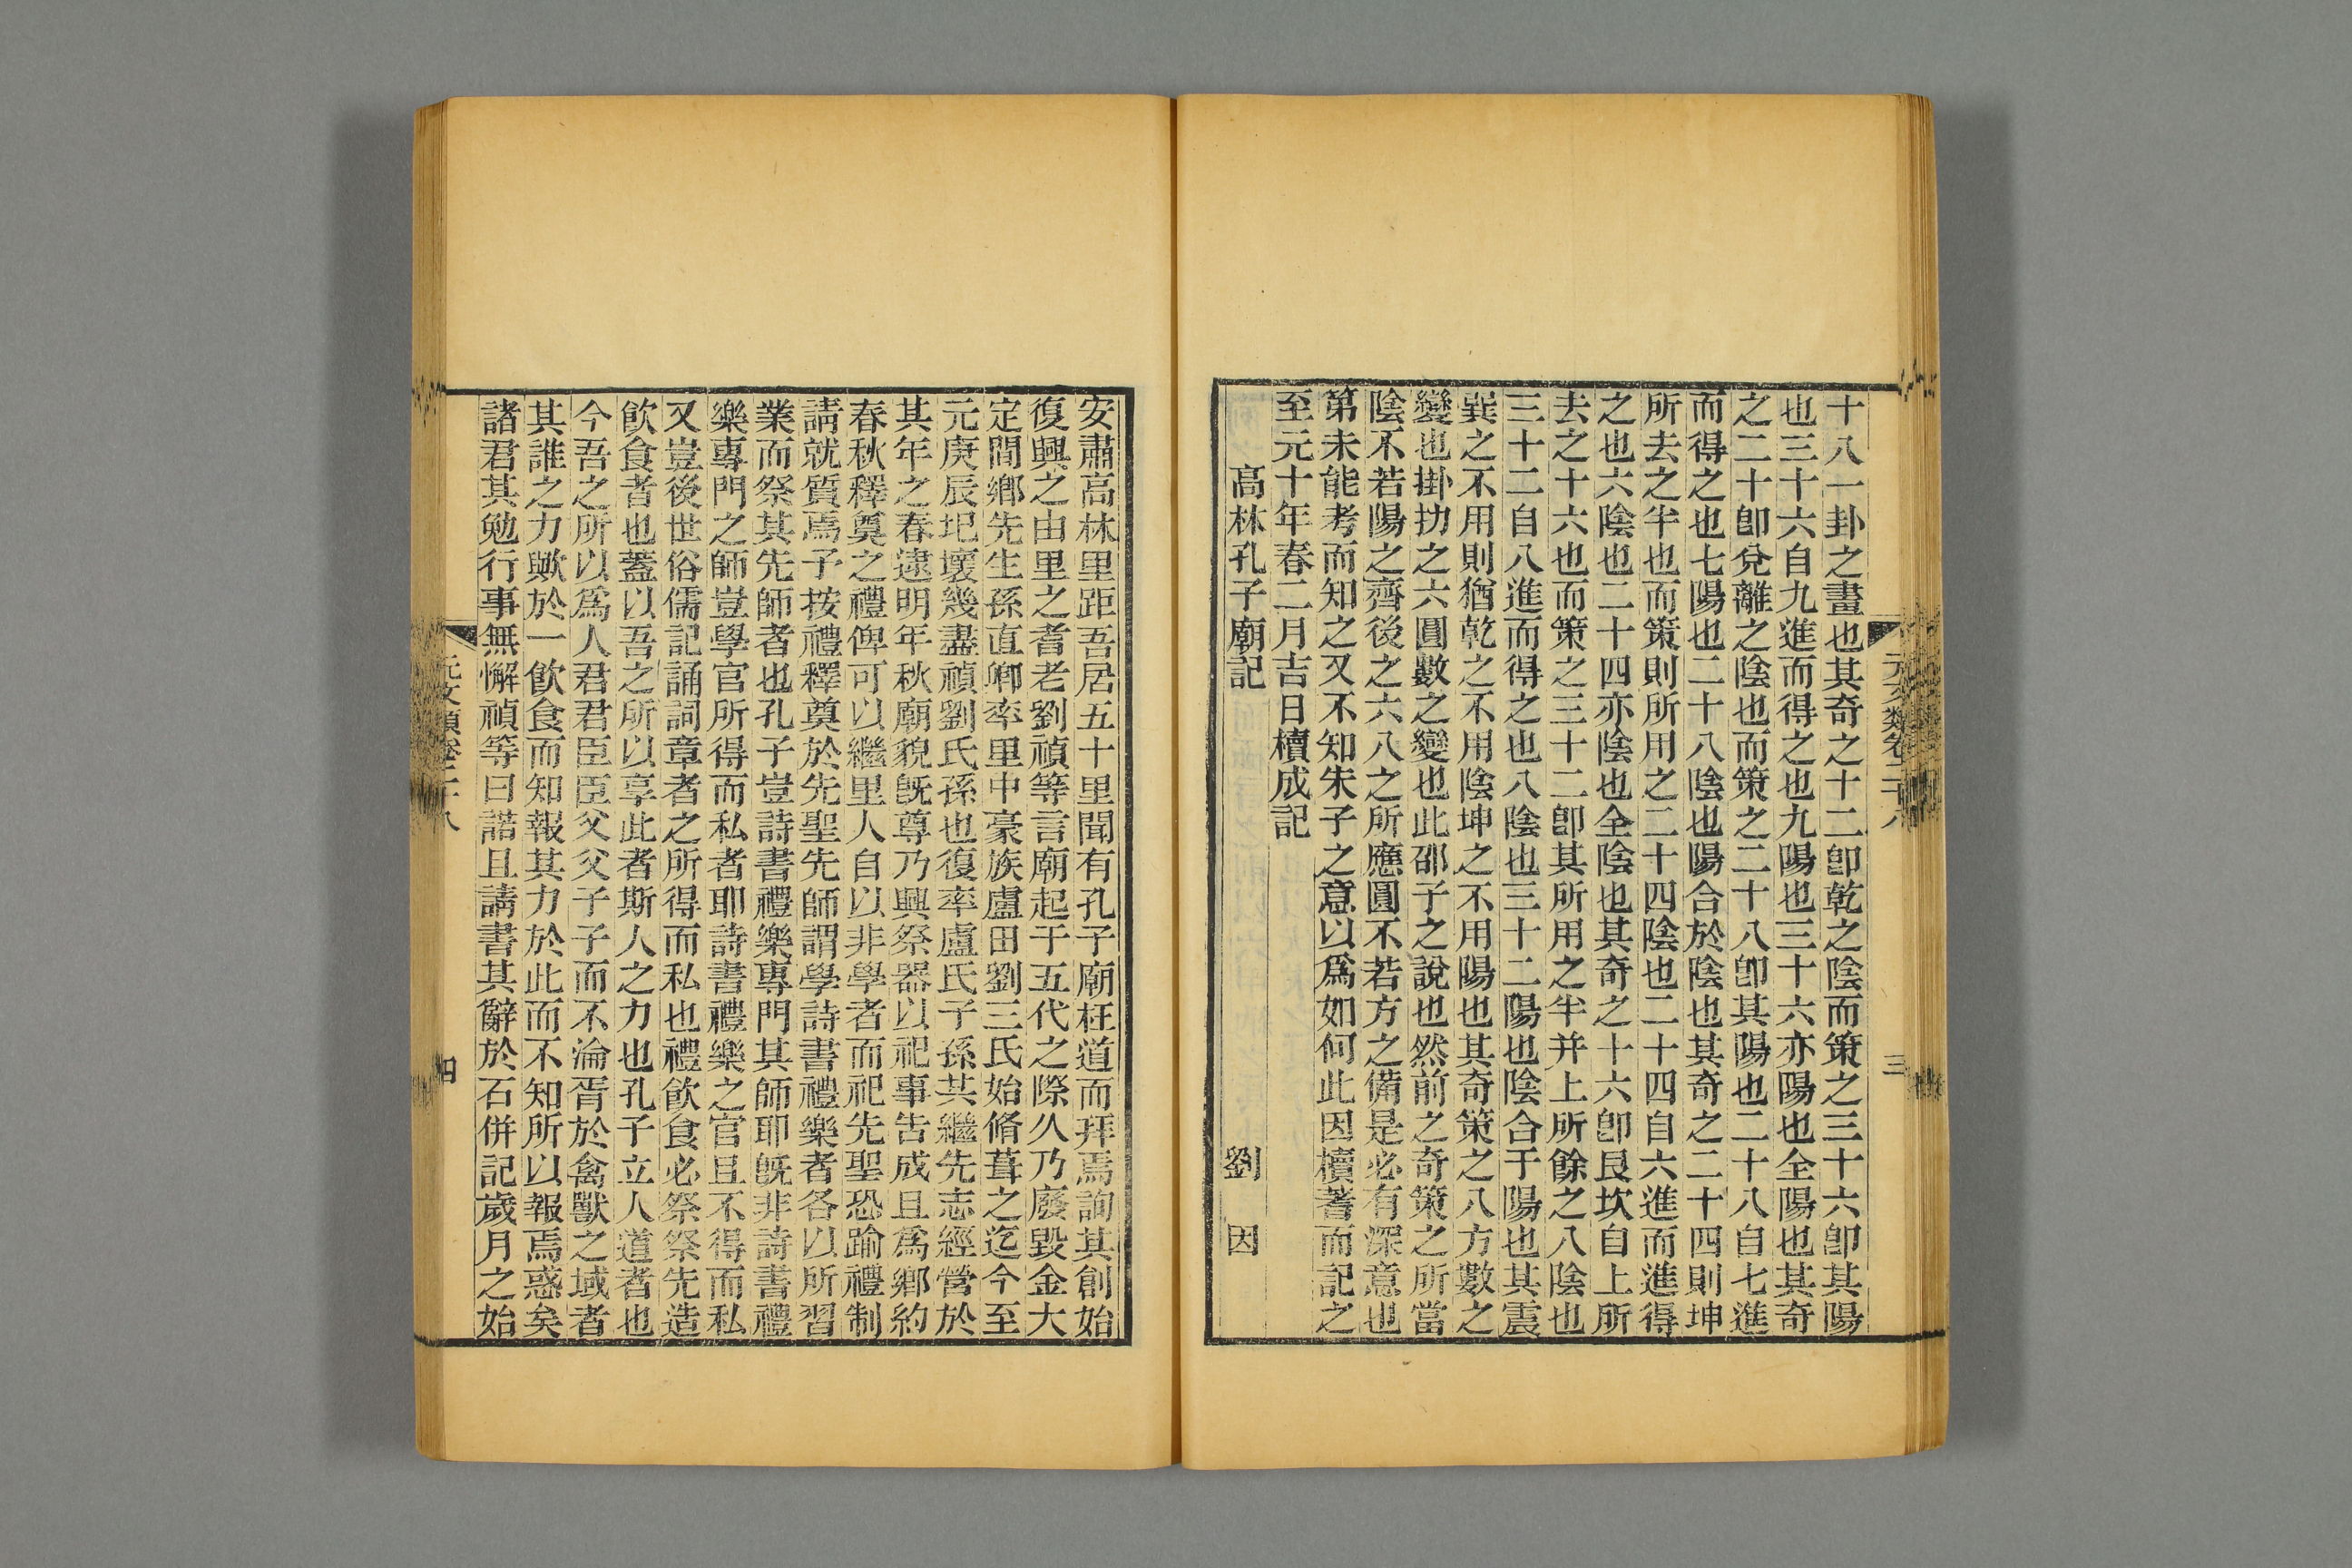 元文類卷二十八
三
十八一卦之畫也其奇之十二卽乾之陰而策之三十六卽其陽
也三十六自九進而得之也九陽也三十六亦陽也全陽也其奇
之二十卽兌離之陰也而策之二十八卽其陽也二十八自七進
而得之也七陽也二十八陰也陽合於陰也其奇之二十四則坤
所去之半也而策則所用之二十四陰也二十四自六進而進得
之也六陰也二十四亦陰也全陰也其奇之十六卽艮坎自上所
去之十六也而策之三十二卽其所用之半并上所餘之八陰也
三十二自八進而得之也八陰也三十二陽也陰合于陽也其震
巽之不用則猶乾之不用陰坤之不用陽也其奇策之八方數之
變也掛扐之六圓數之變也此邵子之說也然前之奇策之所當
陰不若陽之齊後之六八之所應圓不若方之備是必有深意也
第未能考而知之又不知朱子之意以爲如何此因櫝蓍而記之
至元十年春二月吉日櫝成記
高林孔子廟記 劉因
安肅高林里距吾居五十里聞有孔子廟枉道而拜焉詢其創始
復興之由里之耆老劉禎等言廟起于五代之際久乃廢毀金大
定間鄉先生孫直卿率里中豪族盧田劉三氏始脩葺之迄今至
元庚辰圮壞幾盡禎劉氏孫也復率盧氏子孫共繼先志經營於
其年之春逮明年秋廟貌旣尊乃興祭器以祀事告成且爲鄉約
春秋釋奠之禮俾可以繼里人自以非學者而祀先聖恐踰禮制
請就質焉予按禮釋奠於先聖先師謂學詩書禮樂者各以所習
業而祭其先師者也孔子豈詩書禮樂專門其師耶旣非詩書禮
樂專門之師豈學官所得而私者耶詩書禮樂之官且不得而私
又豈後世俗儒記誦詞章者之所得而私也禮飮食必祭祭先造
飮食者也蓋以吾之所以享此者斯人之力也孔子立人道者也
今吾之所以爲人君君臣臣父父子子而不淪胥於禽獸之域者
其誰之力歟於一飮食而知報其力於此而不知所以報焉惑矣
諸君其勉行事無懈禎等曰諾且請書其辭於石併記歲月之始
元文類卷二十八
四